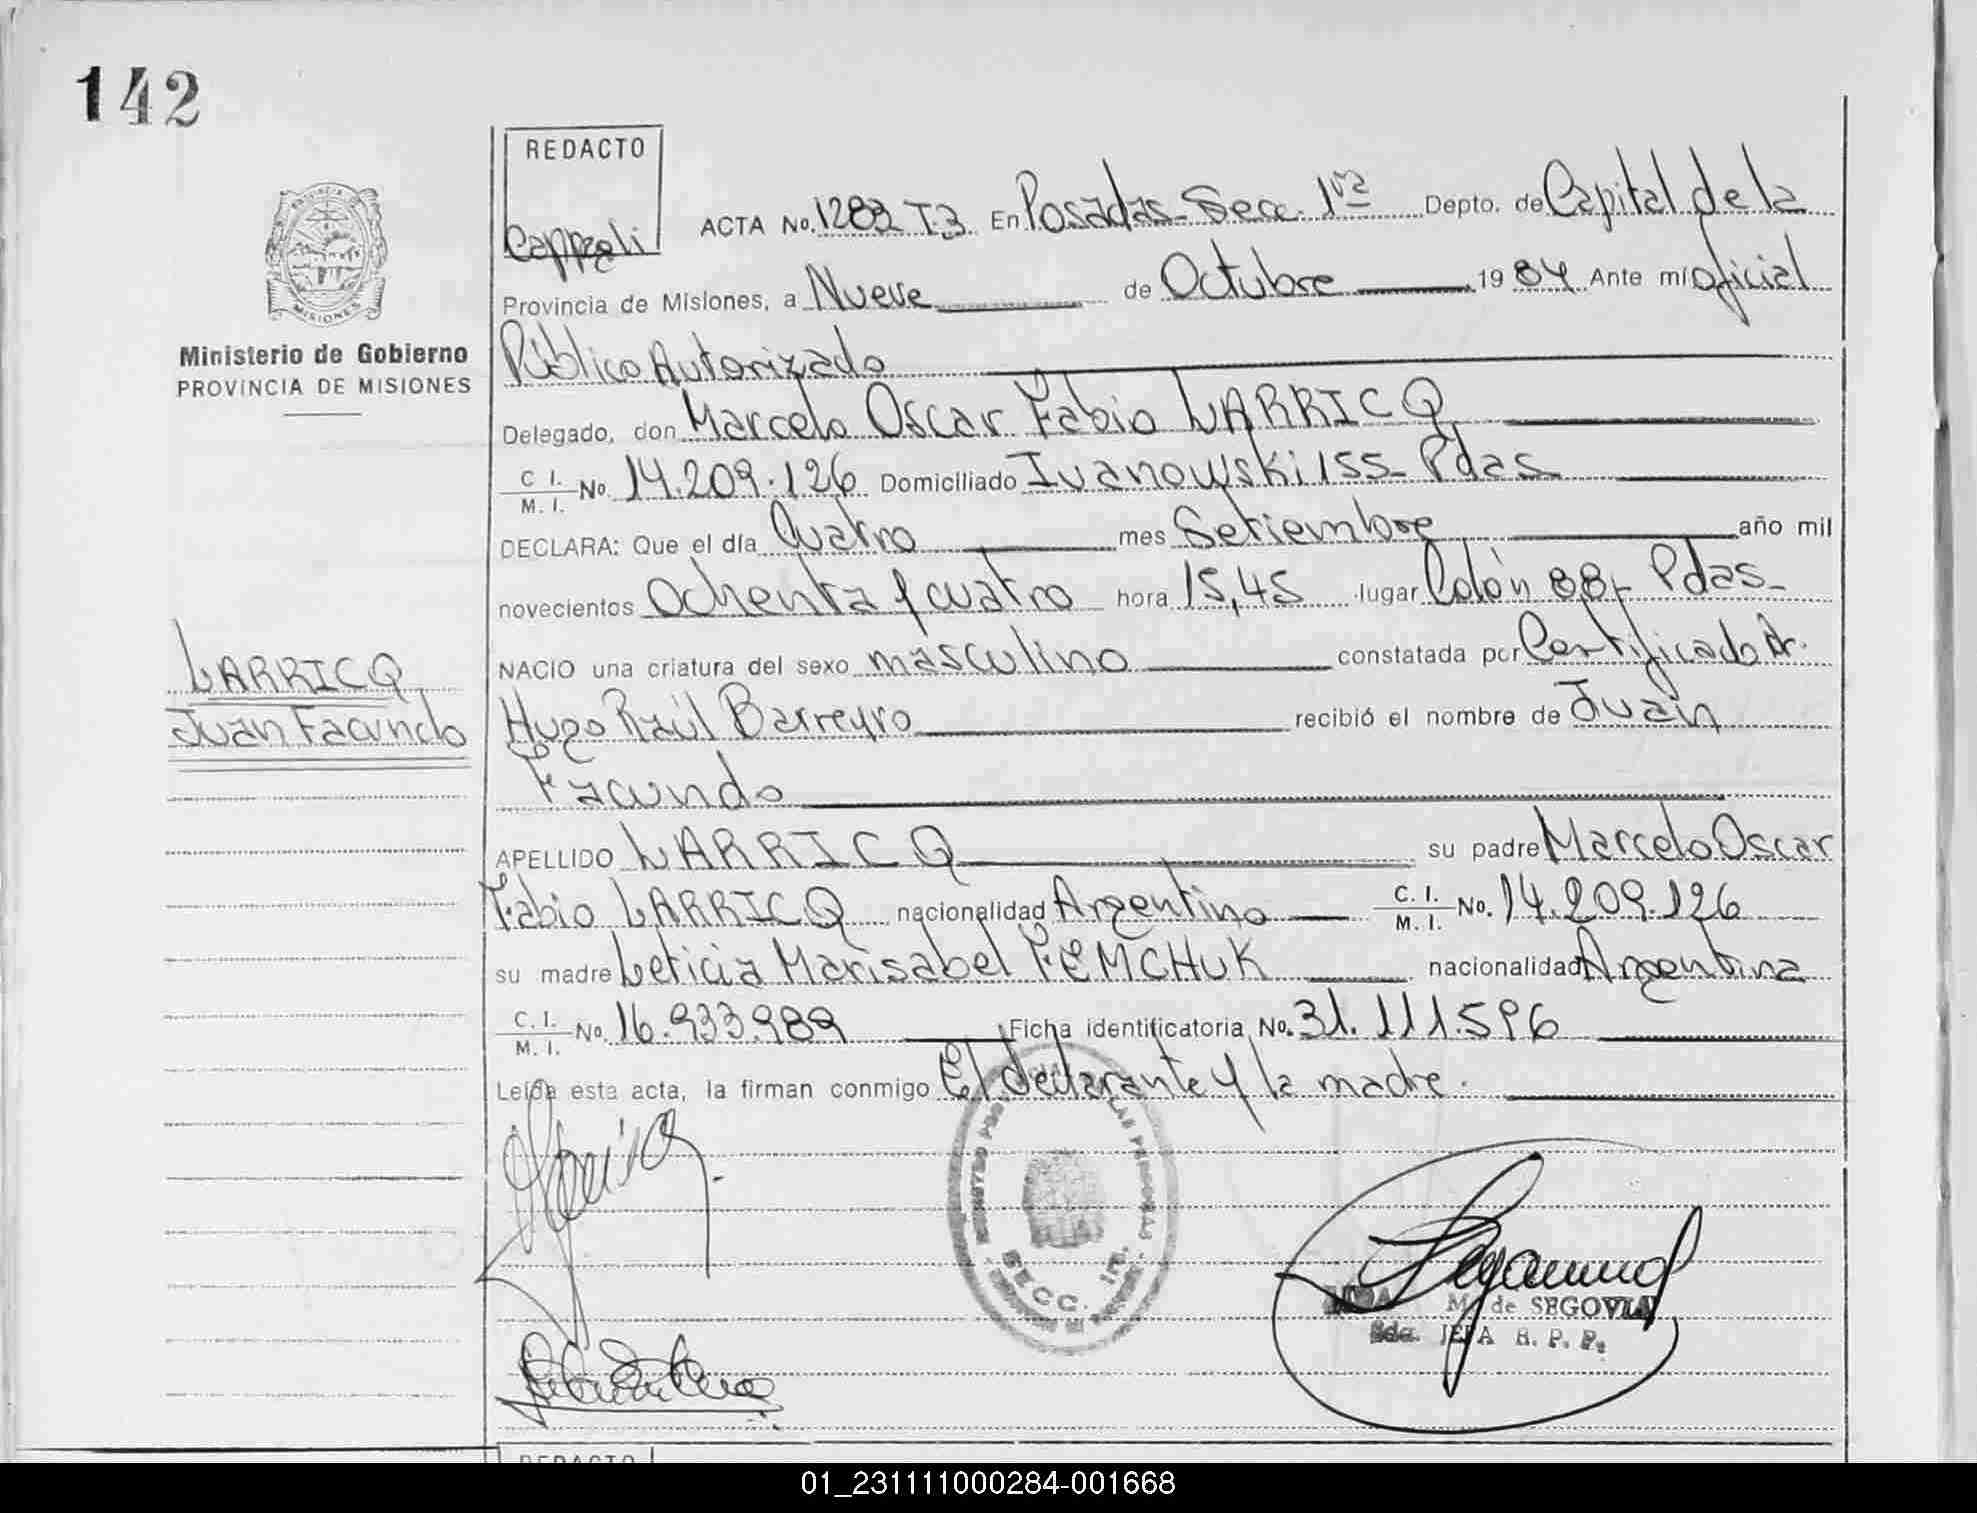 142
REDACTO
Cappeli
ACTA No. 1283 T.3 En Posadas-Secc. 1ra Depto. de Capital de la
Provincia de Misiones, a Nueve de Octubre 1984 Ante mi Oficial
Público Autorizado
Delegado, don Marcelo Oscar Fabio LARRICQ
C. I. / M. I. No. 14.209.126 Domiciliado Ivanowski 155- Pdas-
DECLARA: Que el día Cuatro mes Setiembre año mil
novecientos Ochenta y cuatro hora 15,45 lugar Colón 88- Pdas-
NACIO una criatura del sexo masculino constatada por Certificado Dr.
Hugo Raúl Barreyro recibió el nombre de Juan
Facundo
APELLIDO LARRICQ su padre Marcelo Oscar
Fabio LARRICQ nacionalidad Argentino C. I. / M. I. No. 14.209.126
su madre Leticia Marisabel FEMCHUK nacionalidad Argentina
C. I. / M. I. No. 16.933.989 Ficha identificatoria No. 31.111.596
Leída esta acta, la firman conmigo El declarante y la madre.
MISIONES
Ministerio de Gobierno
PROVINCIA DE MISIONES
LARRICQ
Juan Facundo
LAS PERSONAS
SECC. 1ra.
M. de SEGOVIA
2da. JEFA R. P. P.
REDACTO
01_231111000284-001668